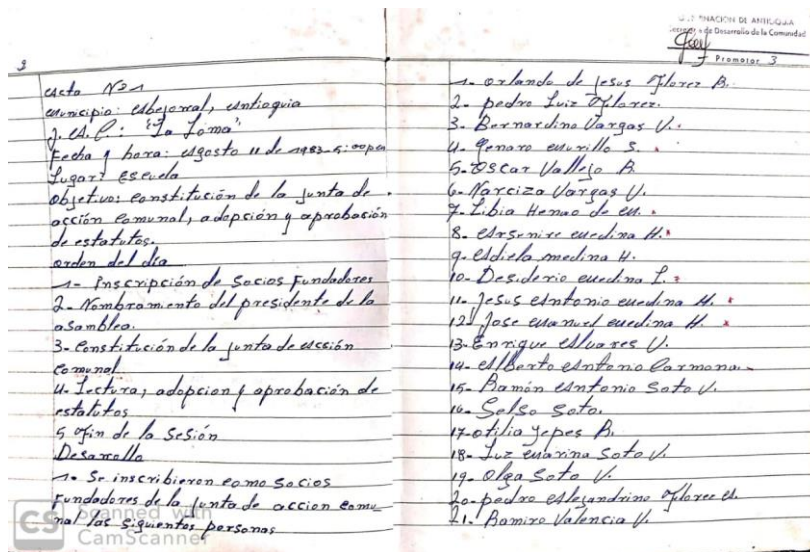 3
Acta Nº 1
Municipio: Abejorral, Antioquia
J. A. C.: "La Loma"
Fecha y hora: Agosto 11 de 1983- 5:00pm
Lugar: Escuela
Objetivo: Constitución de la junta de
acción comunal, adopción y aprobación
de estatutos.
orden del día
1- Inscripción de socios Fundadores
2- Nombramiento del presidente de la
asamblea.
3- Constitución de la junta de acción
comunal
4- Lectura, adopcion y aprobación de
estatutos
5 Fin de la Sesión
Desarrollo
1- Se inscribieron como socios
Fundadores de la junta de accion comu-
nal las siguientes personas
CS Scanned with
CamScanner
GOBERNACIÓN DE ANTIOQUIA
Secretaría de Desarrollo de la Comunidad
Promotor 3
1- Orlando de Jesus Florez B.
2- pedro Luiz Florez.
3. Bernardino Vargas V.
4- Genaro Murillo S.
5- Oscar Vallejo B.
6- Narciza Vargas V.
7- Libia Henao de M.
8- Arsenire Medina H.
9- Adiela medina H.
10- Desiderio Medina L.
11- Jesus Antonio Medina H.
12- Jose Manuel Medina H.
13- Enrique Alvares V.
14- Alberto Antonio Carmona
15- Ramón Antonio Soto V.
16- Selso Soto.
17- otilia Yepes B.
18- Luz Marina Soto V.
19- Olga Soto V.
20- pedro Alejandrino Florez A.
21- Ramiro Valencia V.